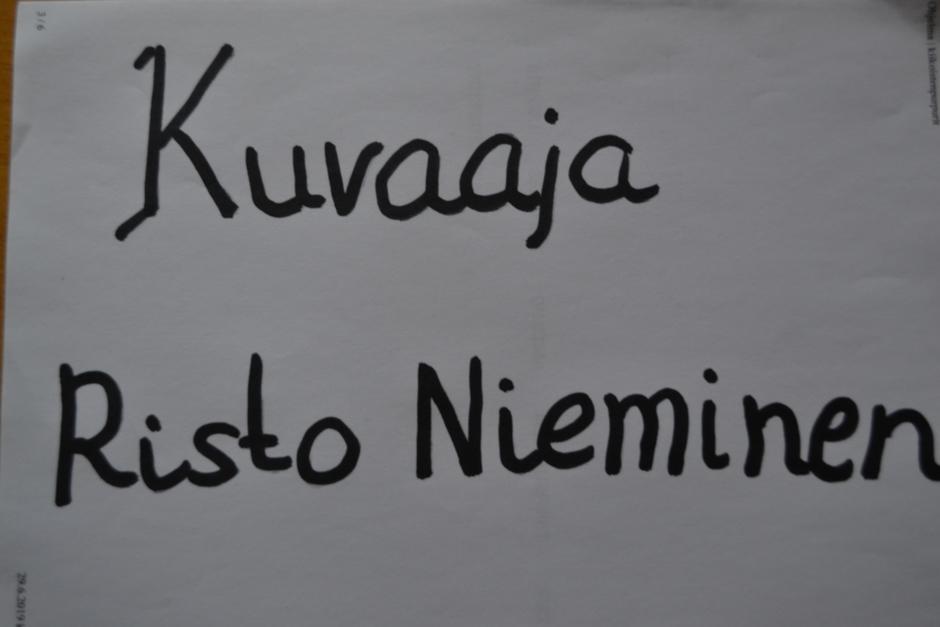 Kuvaaja
Risto Nieminen
3/6
29.6.2019